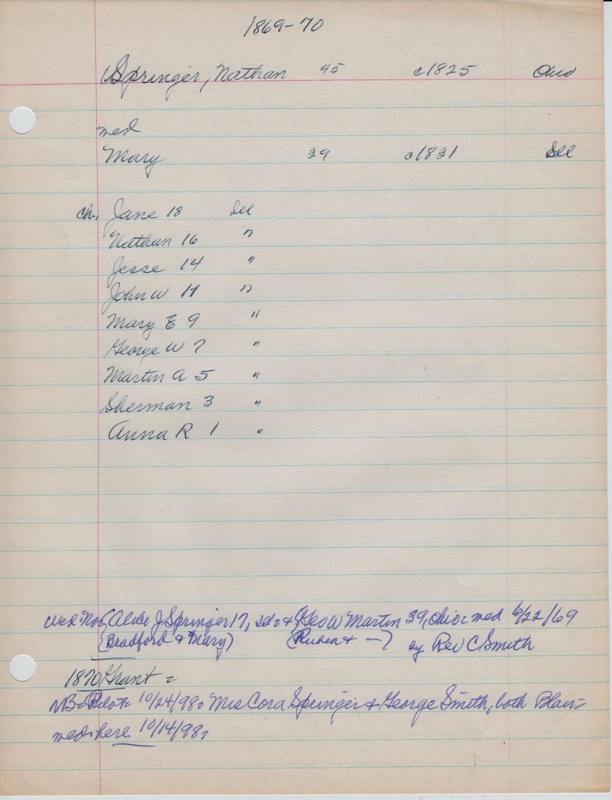 1869-70
Springer, Nathan 45 c1825 Ohio
med
Mary 39 c1831 Ill
ch. Jane 18 Ill
Nathan 16 "
Jesse 14 "
John W 11 "
Mary E 9 "
George W 7 "
Martin A 5 "
Sherman 3 "
Anna R 1 "
(Alice J Springer 17, Ill & (Geo W Martin 39, Ohio med 6/22/69
(Bradford & Mary) (Ruben & —) by Rev C Smith
1870 Grant =
10/24/98= Mrs Cora Springer & George Smith, both Blair=
med here 10/14/98=